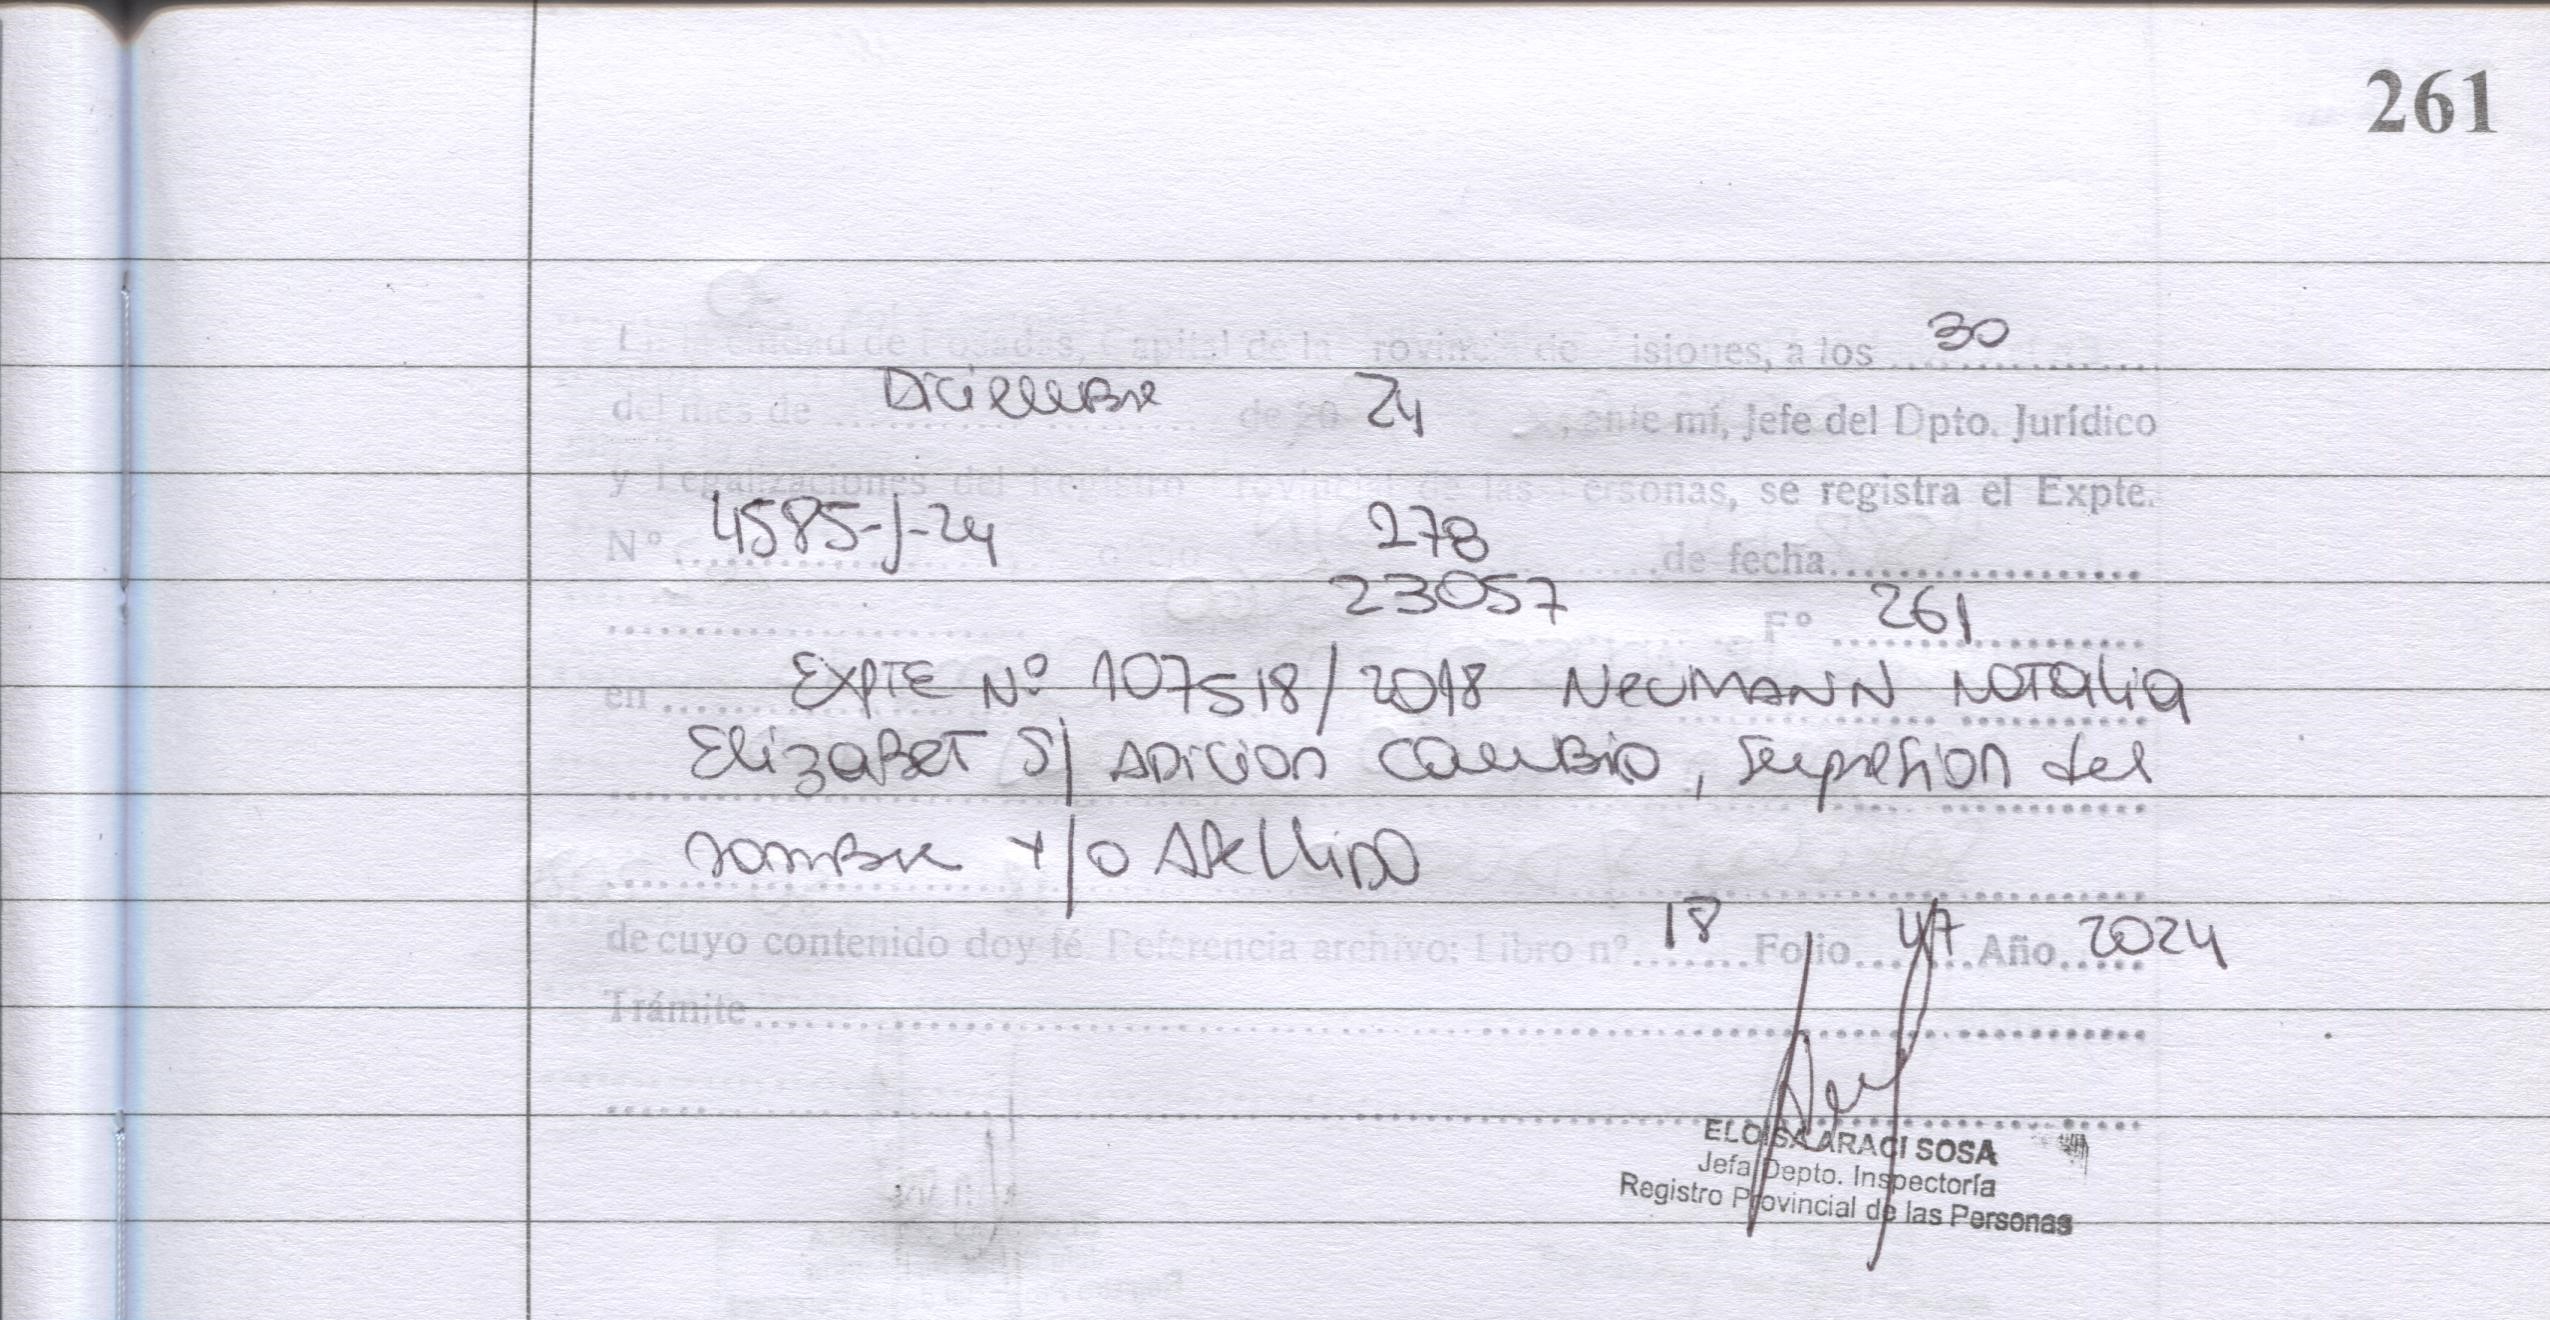 261
En la ciudad de Posadas, Capital de la Provincia de Misiones, a los 30
del mes de Diciembre de 20 24, ante mí, Jefe del Dpto. Jurídico
y Legalizaciones del Registro Provincial de las Personas, se registra el Expte.
Nº 4585-J-24 278 de fecha
23057 Fº 261
en EXPTE Nº 107518/2018 NEUMANN NATALIA
ELIZABET S/ ADICION CAMBIO, Supresion del
nombre Y/O APELLIDO
de cuyo contenido doy fé Referencia archivo: Libro nº 18 Folio 47 Año 2024
Trámite
ELOISA ARACI SOSA
Jefa Depto. Inspectoría
Registro Provincial de las Personas